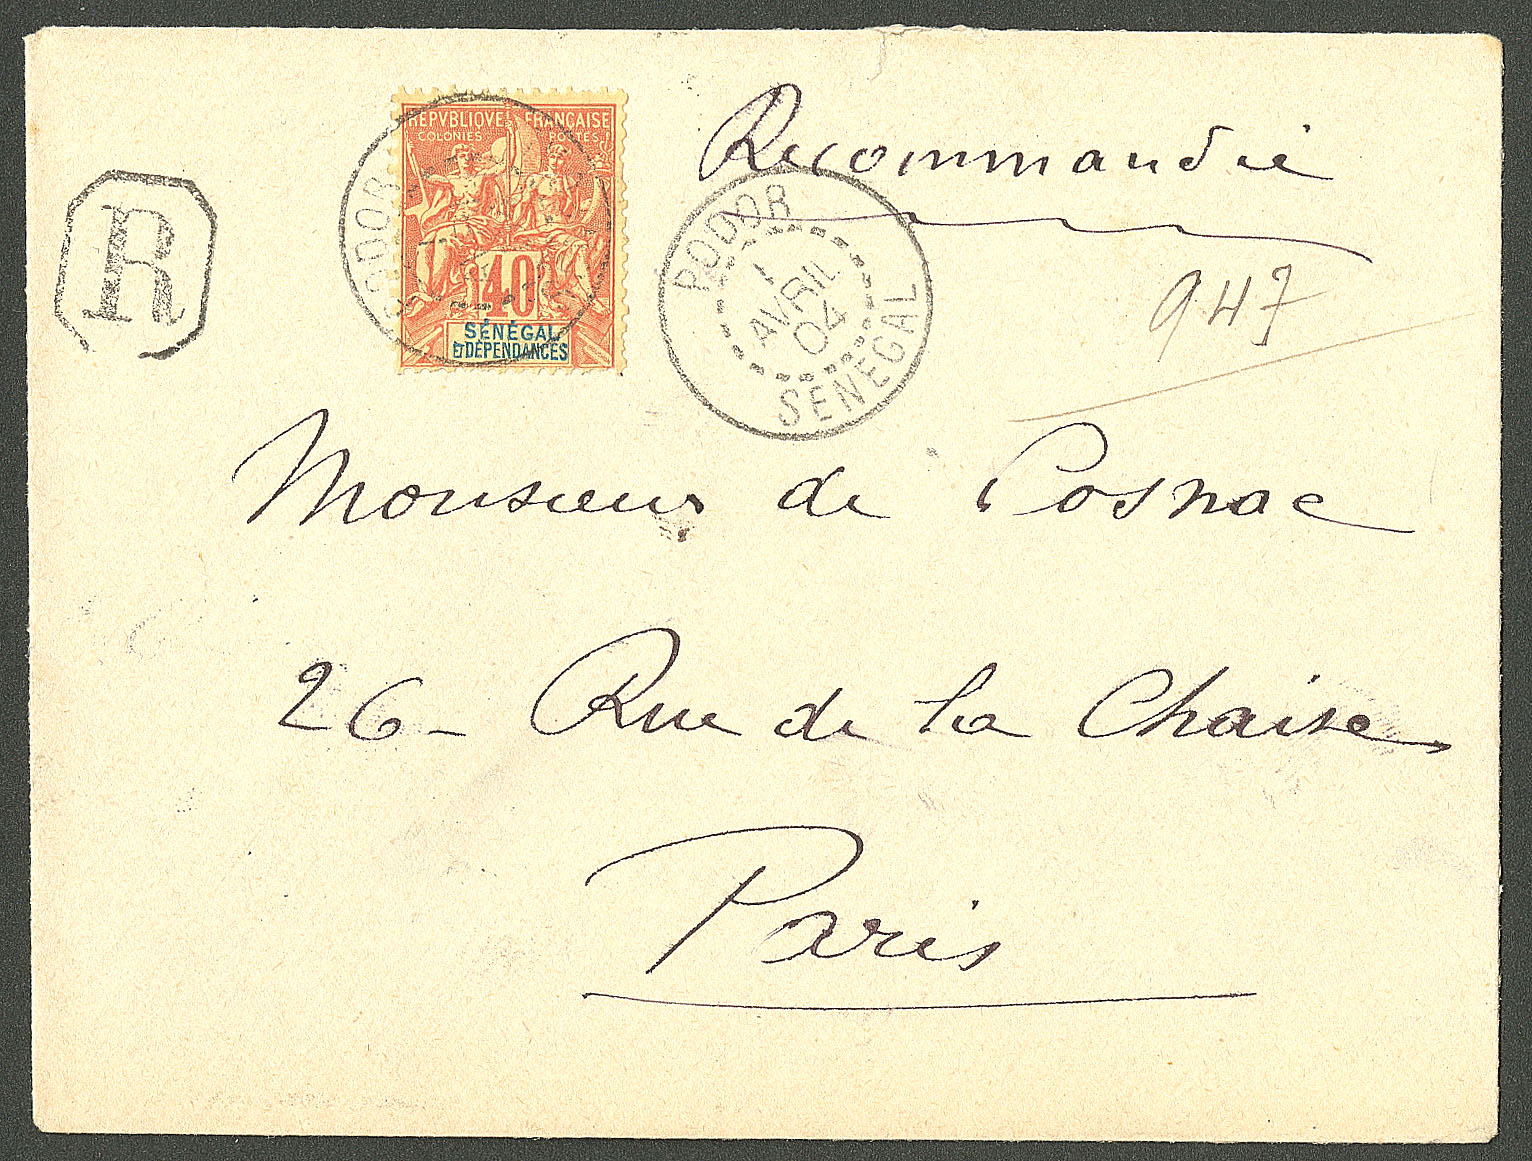 Recommandée
REPVBLIQVE FRANÇAISE
COLONIES POSTES
40
SÉNÉGAL
ET DÉPENDANCES
PODOR
R
PODOR
1
AVRIL
04
SÉNÉGAL
947
Monsieur de Posnac
26 - Rue de la Chaise
Paris